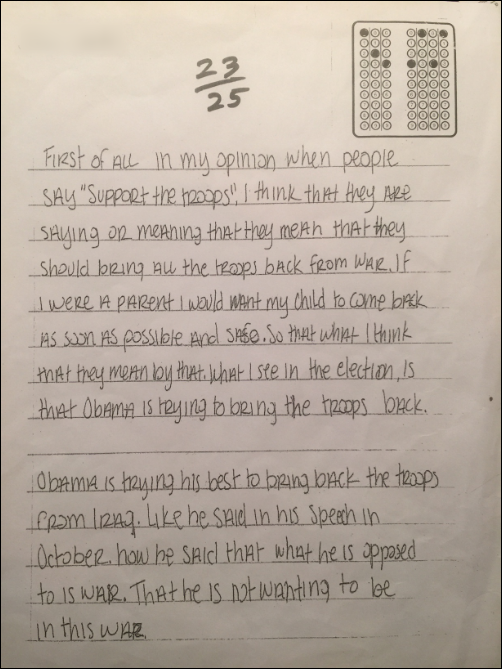 23
25
First of all in my opinion when people
say "Support the troops", I think that they are
saying or meaning that they mean that they
should bring all the troops back from war. If
I were a parent I would want my child to come back
as soon as possible and safe. So that what I think
that they mean by that. What I see in the election, is
that Obama is trying to bring the troops back.
Obama is trying his best to bring back the troops
from Iraq. Like he said in his speech in
October. how he said that what he is opposed
to is war. That he is not wanting to be
in this war.